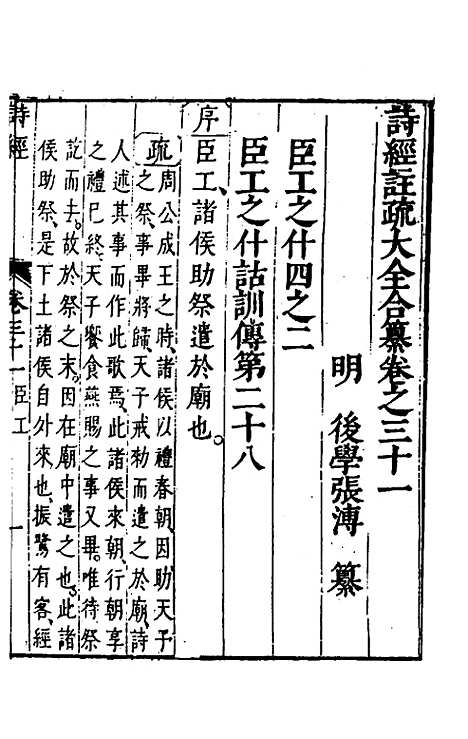 詩經註疏大全合纂卷之三十一
明　後學張溥　纂
臣工之什四之二
臣工之什詁訓傳第二十八
序
臣工、諸侯助祭遣於廟也。
疏
周公成王之時、諸侯以禮春朝、因助天子
之祭、事畢將歸、天子戒勑而遣之於廟、詩
人述其事而作此歌焉、此諸侯來朝、行朝享
之禮已終、天子饗食燕賜之事又畢。唯待祭
訖而去。故於祭之末。因在廟中遣之也。此諸
侯助祭、是下土諸侯自外來也、振鷺有客、經
詩經
卷三十一臣工
一